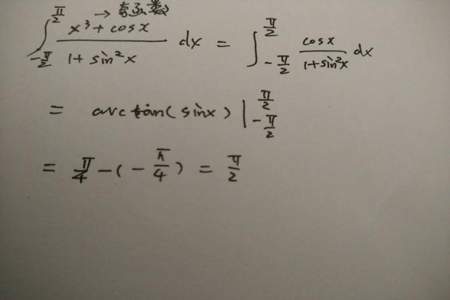 → 奇函数
∫_{-π/2}^{π/2} (x³ + cosx)/(1 + sin²x) dx = ∫_{-π/2}^{π/2} cosx/(1+sin²x) dx
= arctan(sinx) |_{-π/2}^{π/2}
= π/4 - (-π/4) = π/2